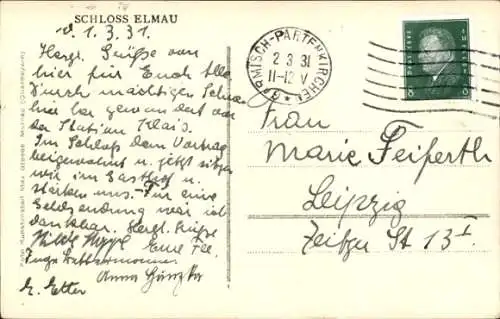 SCHLOSS ELMAU
d. 1.3.31
Herzl. Grüße von
hier für Euch Alle
Durch mächtigen Schnee
hier her gewandert von
der Station Klais.
Im Schloß dem Vortrag
beigewohnt u. jetzt sitzen
wir im Gasthof u.
stärken uns. - Für eine
Geldsendung wär ich
dankbar. Herzl. Grüße
Hilde Eure
Inge
Anna
E. Etter
GARMISCH-PARTENKIRCHEN
2 3 31
11-12 V
8 8
Frau
Marie Feiferth
Leipzig
Zeitzer St 13 I.